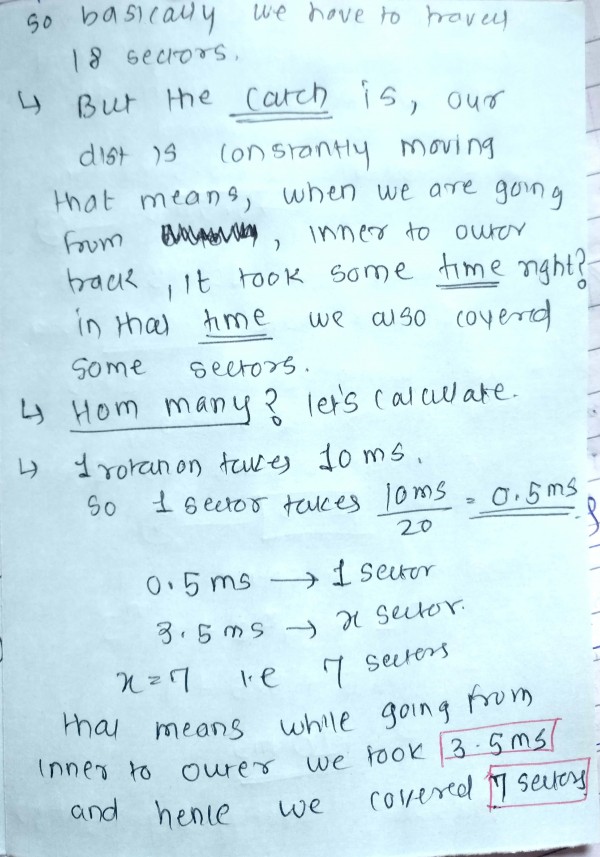 so basically we have to travel
18 sectors.
↳ But the catch is, our
dist is constantly moving
that means, when we are going
from , inner to outer
track, it took some time right?
in that time we also covered
some sectors.
↳ Hom many? let's calculate.
↳ 1 rotation takes 10 ms.
So 1 sector takes 10ms/20 = 0.5ms.
0.5 ms → 1 sector
3.5 ms → x sector.
x = 7 i.e 7 sectors
that means while going from
inner to outer we took 3.5ms
and hence we covered 7 sectors